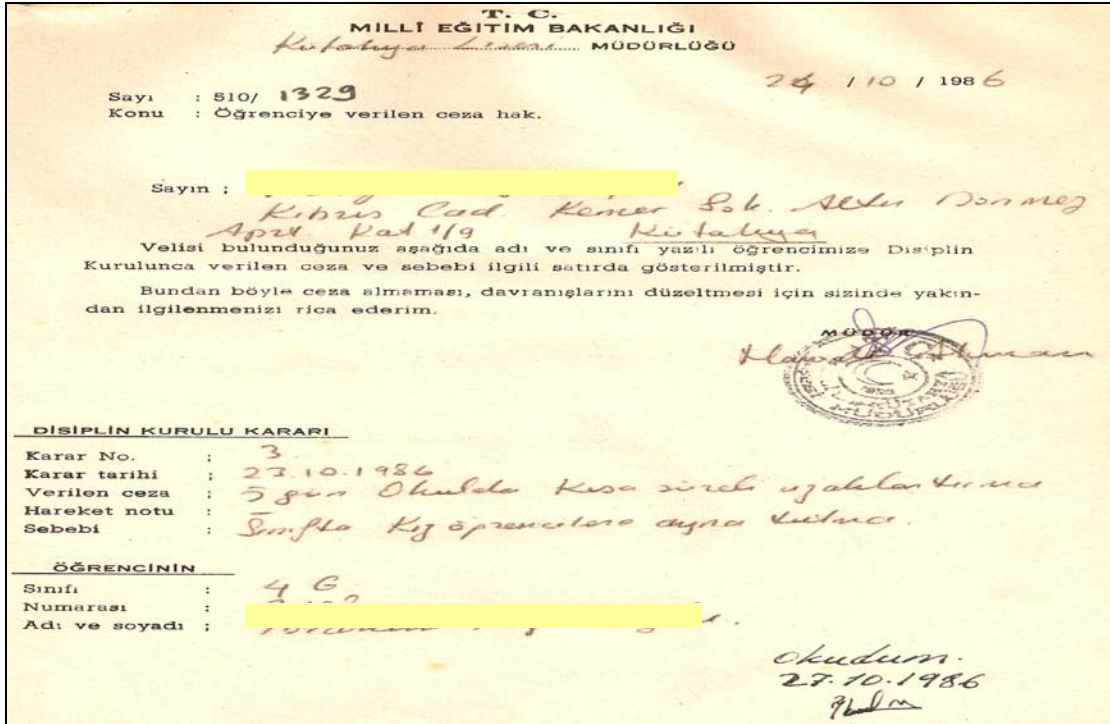 T. C.
MİLLÎ EĞİTİM BAKANLIĞI
Kütahya Lisesi MÜDÜRLÜĞÜ
24 / 10 / 1986
Sayı : 510/ 1329
Konu : Öğrenciye verilen ceza hak.
Sayın :
Kıbrıs Cad. Kemer Sok. Dönmez
Aprt. Kat 1/9 Kütahya
Velisi bulunduğunuz aşağıda adı ve sınıfı yazılı öğrencimize Disiplin
Kurulunca verilen ceza ve sebebi ilgili satırda gösterilmiştir.
Bundan böyle ceza almaması, davranışlarını düzeltmesi için sizinde yakın-
dan ilgilenmenizi rica ederim.
MÜDÜR
DİSİPLİN KURULU KARARI
Karar No. : 3
Karar tarihi : 23.10.1986
Verilen ceza : 5 gün Okulda Kısa süreli uzaklaştırma
Hareket notu :
Sebebi : Sınıfta Kız öğrencilere ayna tutma.
ÖĞRENCİNİN
Sınıfı : 4 G
Numarası :
Adı ve soyadı :
Okudum.
27.10.1986